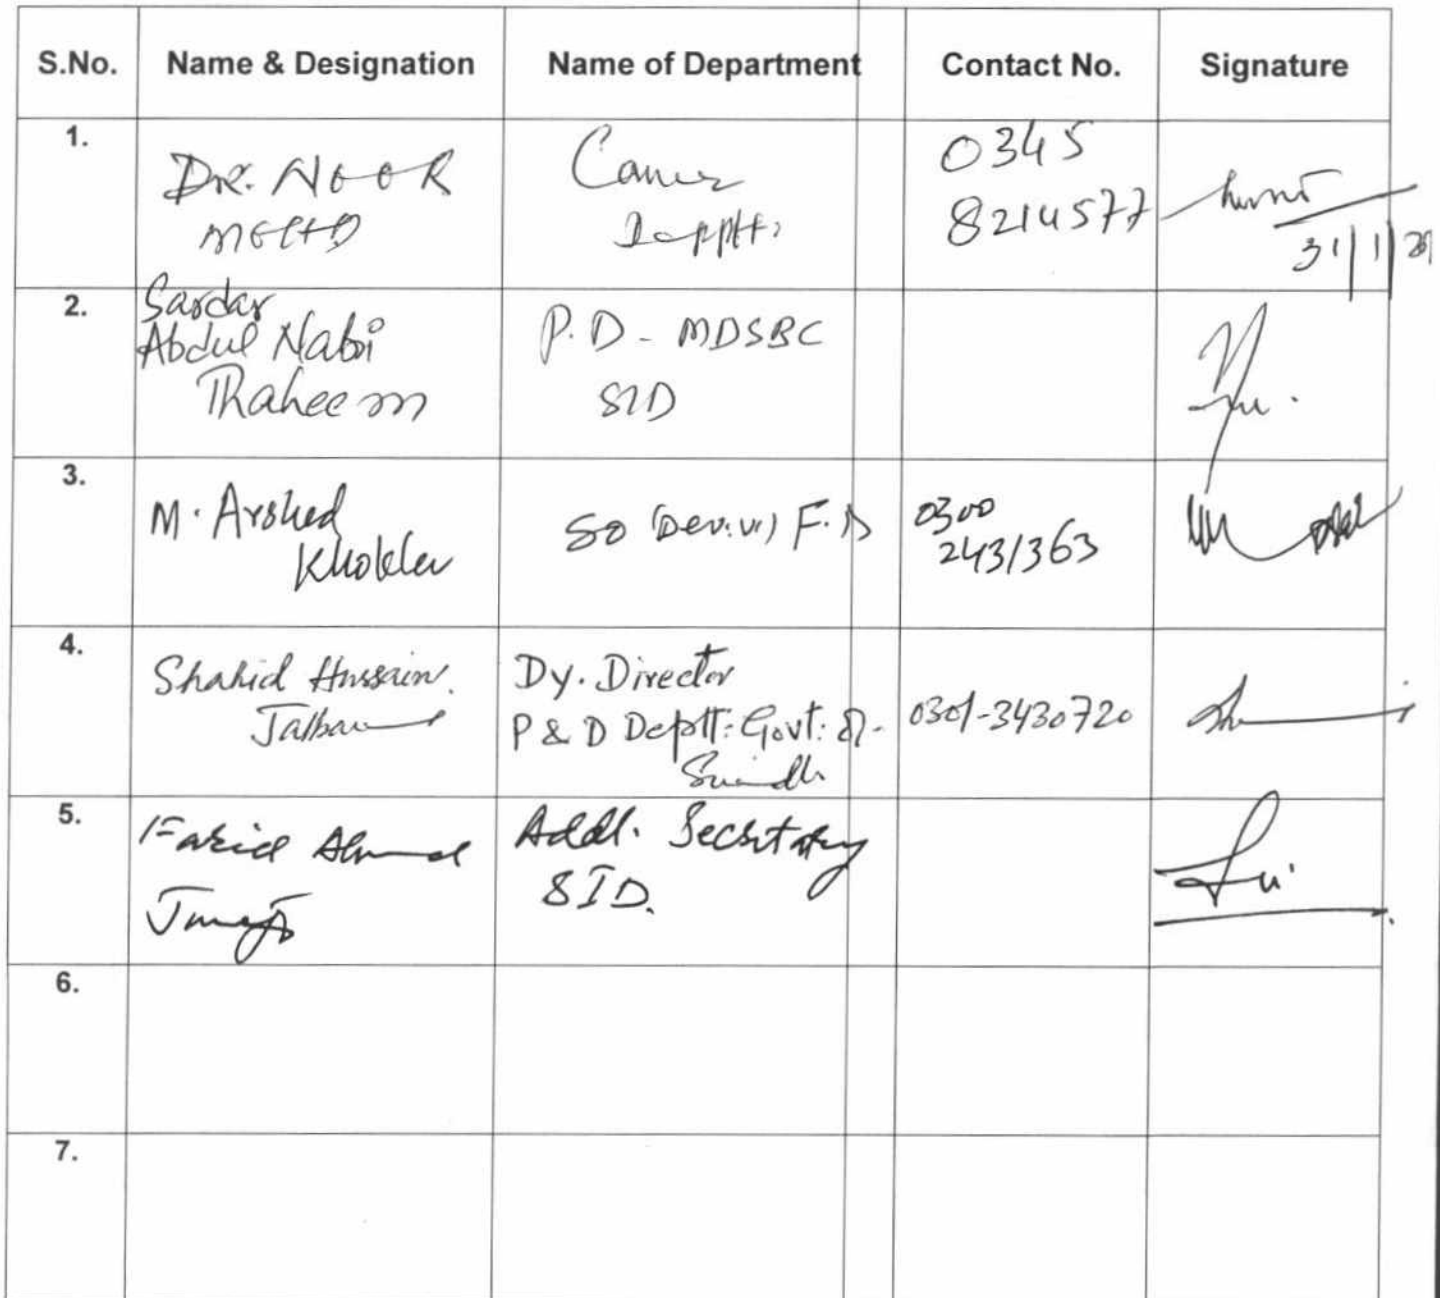 S.No. Name & Designation Name of Department Contact No. Signature
1.
DR. NOOR
0345
8214577
31/1/
2.
Sardar
Abdul Nabi
Thaheem
P.D - MDSBC
SID
3.
M. Arshed
Khokhar
SO (Dev:VI) F.D
0300
2431363
4.
Shahid Hussain.
Dy. Director
P & D Deptt: Govt: of
Sindh
0301-3430720
5.
Farid Ahmed
Junejo
Addl. Secretary
SID.
6.
7.